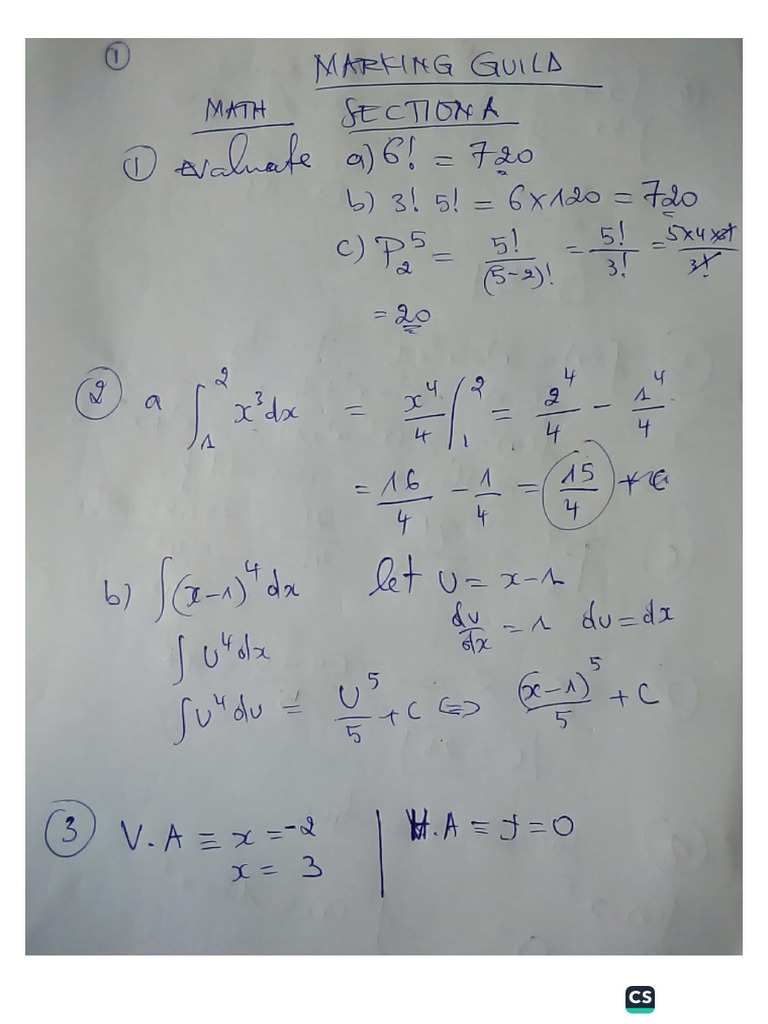 ①
MARKING GUILD
MATH SECTION A
① Evaluate a) 6! = 720
b) 3! 5! = 6 x 120 = 720
c) P⁵₂ = 5!/(5-2)! = 5!/3! = 5x4x3!/3!
= 20
② a ∫₁² x³dx = x⁴/4 |₁² = 2⁴/4 - 1⁴/4
= 16/4 - 1/4 = 15/4
b) ∫(x-1)⁴dx let U = x-1
∫U⁴dx du/dx = 1 du = dx
∫U⁴du = U⁵/5 + C <=> (x-1)⁵/5 + C
③ V.A ≡ x = -2 | H.A ≡ y = 0
x = 3
CS